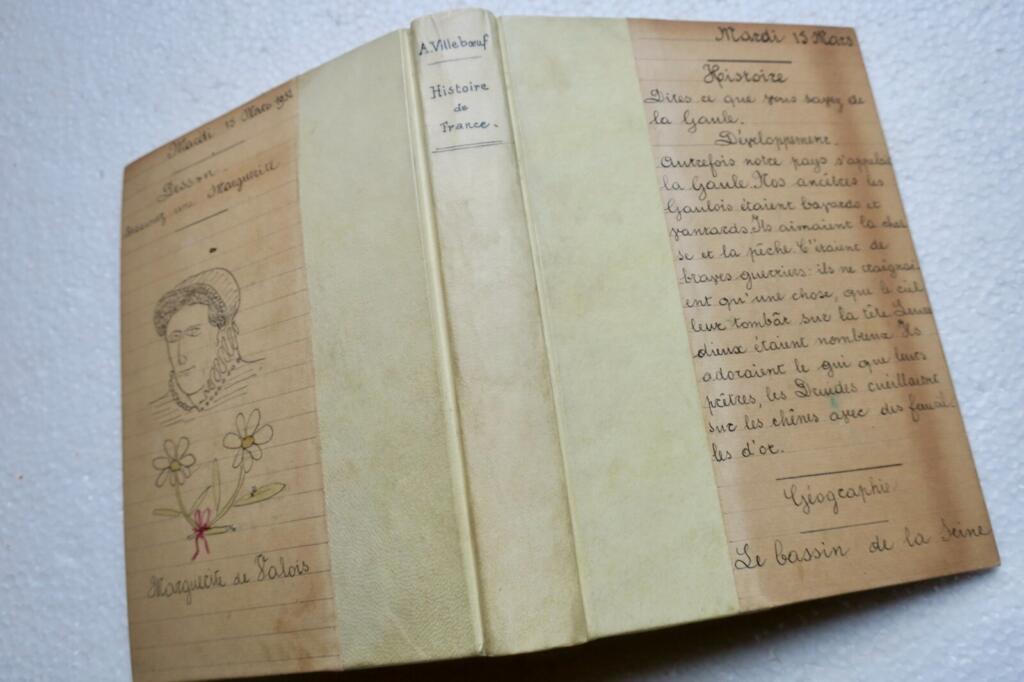 Mardi 15 Mars 1932
Dessin.
Dessinez une Marguerite
Marguerite de Valois
A. Villebœuf
Histoire
de
France.
Mardi 15 Mars
Histoire
Dites ce que vous savez de
la Gaule.
Développement.
Autrefois notre pays s'appelait
la Gaule. Nos ancêtres les
Gaulois étaient bavards et
vantards. Ils aimaient la chas
se et la pêche. C'étaient de
braves guerriers : ils ne craignai
ent qu'une chose, que le ciel
leur tombât sur la tête. Leurs
dieux étaient nombreux. Ils
adoraient le gui que leurs
prêtres, les Druides cueillaient
sur les chênes avec des faucil-
les d'or.
Géographie
Le bassin de la Seine